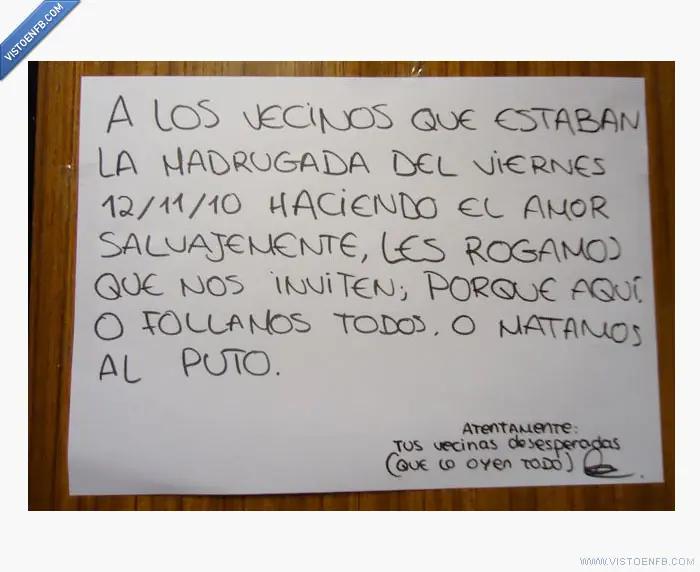 VISTOENFB.COM
A LOS VECINOS QUE ESTABAN
LA MADRUGADA DEL VIERNES
12/11/10 HACIENDO EL AMOR
SALVAJEMENTE, LES ROGAMOS
QUE NOS INVITEN; PORQUE AQUÍ
O FOLLAMOS TODOS. O MATAMOS
AL PUTO.
ATENTAMENTE:
TUS vecinas desesperadas
(QUE LO OYEN TODO)
WWW.VISTOENFB.COM